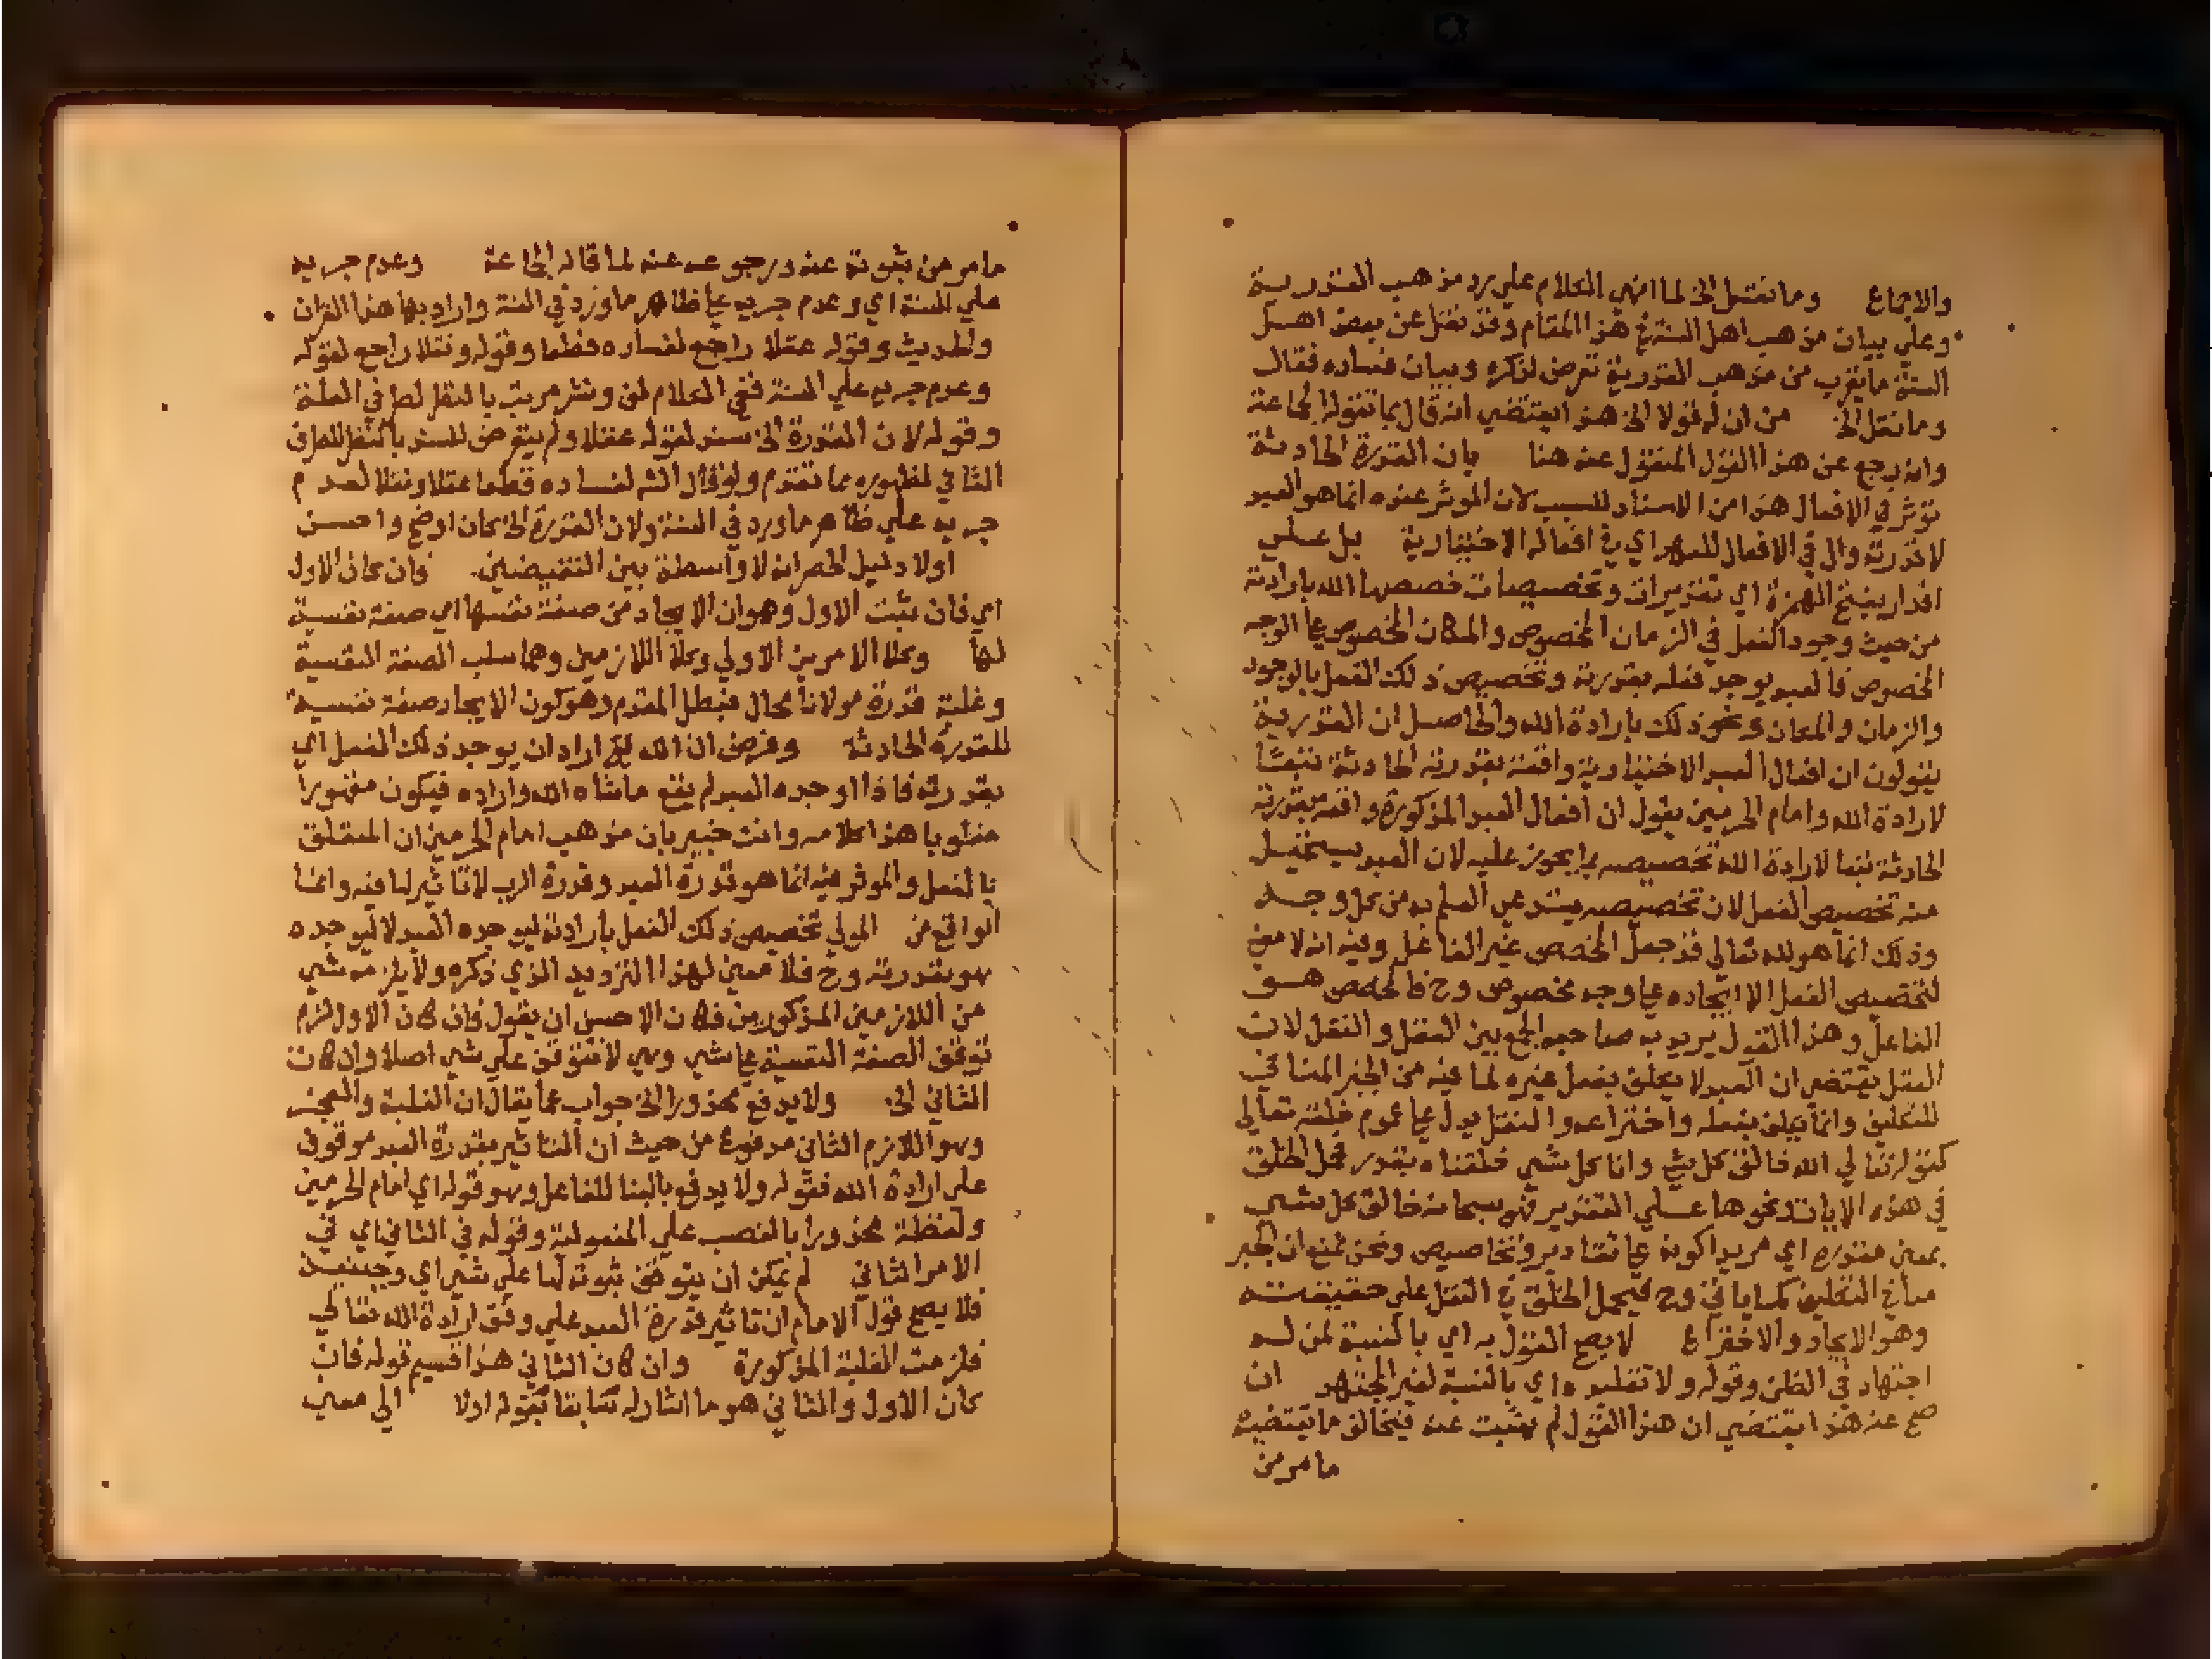 والاجماع وما نقل الخ لما انهي الكلام علي رد مذهب القدرية
وعلي بيان مذهب اهل السنة في هذا المقام وقد نقل عن بعض اهل
السنة ما يقرب من مذهب القدرية تعرض لذكره وبيان فساده فقال
وما نقل الخ من ان له قولا الخ هذا يقتضي انه قال بما تقوله الجماعة
وانه رجع عن هذا القول المنقول عنه هنا بان القدرة الحادثة
تؤثر في الافعال هذا من الاسناد للسبب لان الموثر عنده انما هو العبد
لا قدرته وال في الافعال للعهد اي في افعاله الاختيارية بل علي
اقدار بفتح الهمزة اي تقديرات وتخصيصات خصصها الله بارادته
من حيث وجود الفعل في الزمان المخصوص والمكان المخصوص علي الوجه
المخصوص فالعبد يوجد فعله بقدرته وتخصيص ذلك الفعل بالوجود
والزمان والمكان ونحو ذلك بارادة الله والحاصل ان القدرية
يقولون ان افعال العبد الاختيارية واقعة بقدرته الحادثة تبعا
لارادة الله وامام الحرمين يقول ان افعال العبد المذكورة واقعة بقدرته
الحادثة تبعا لارادة الله تخصيصه بما يجوز عليه لان العبد يستحيل
منه تخصيص الفعل لان تخصيصه يستدعي العلم به من كل وجه
وذلك انما هو لله تعالي فقد جعل المخصص غير الفاعل وفيه انه لا معني
لتخصيص الفعل الا ايجاده علي وجه مخصوص وح فالمخصص هو
الفاعل وهذا القول يريد به صاحبه الجمع بين العقل والنقل لان
العقل يقتضي ان العبد لا يكلف بفعل غيره لما فيه من الجبر المنافي
للتكليف وانما يكلف بفعله واختراعه والنقل يدل علي عموم خلقه تعالي
كقوله تعالي الله خالق كل شي وانا كل شي خلقناه بقدر فحمل الخلق
في هذه الايات ونحوها علي التقدير فهو سبحانه خالق كل شي
بمعني مقدره اي مريدا كونه علي تقادير وتخاصيص ونحن نمنع ان الجبر
مناف التكليف كما ياتي وح فيحمل الخلق في النقل علي حقيقته
وهو الايجاد والاختراع لا يصح القول به اي بالنسبة لمن له
اجتهاد في الظن وقوله ولا تقليده اي بالنسبة لغير المجتهد ان
صح عنه هذا يقتضي ان هذا القول لم يثبت عنه فيخالف ما يقتضيه
ما مر من
ما مر من ثبوته عنه ورجوعه عنه لما قاله الجماعة وعدم جريه
علي السنة اي وعدم جريه علي ظاهر ما ورد في السنة واراد بها هذا القران
والحديث وقوله عقلا راجع لفساده قطعا وقوله ونقلا راجع لقوله
وعدم جريه علي السنة ففي الكلام لف ونشر مرتب بالنقل لها في العلة
وقوله لان القدرة الخ سند لقوله عقلا ولم يتعرض للسند بالنقل للطرف
الثاني لظهوره مما تقدم ولو قال الش لفساده قطعا عقلا ونقلا لعدم
جريه علي ظاهر ما ورد في السنة ولان القدرة الخ كان اوضح واحسن
اولا دليل الحصر انه لا واسطة بين النقيضين فان كان الاول
اي فان ثبت الاول وهو ان الايجاد من صفة نفسها اي صفة نفسية
لها وكلا الامرين الاولي وكلا اللازمين وهما سلب الصفة النفسية
وغلبة قدرة مولانا محال فبطل المقدم وهو كون الايجاد صفة نفسية
للقدرة الحادثة وفرض ان الله تع اراد ان يوجد ذلك الفعل اي
بقدرته فاذا اوجده العبد لم يقع ما شاه الله واراده فيكون مقهورا
مغلوبا هذا كلامه وانت خبير بان مذهب امام الحرمين ان المتعلق
بالفعل والموثر فيه انما هو قدرة العبد وقدرة الرب لا تاثير لها فيه وانما
الواقع من المولي تخصيص ذلك الفعل بارادته ليوجده العبد لا ليوجده
هو بقدرته وح فلا معني لهذا الترديد الذي ذكره ولا يلزمه شي
من اللازمين المذكورين فكان الاحسن ان يقول فان كان الاول لزم
توقف الصفة النفسية علي شي وهي لا تتوقف علي شي اصلا وان كان
الثاني الخ ولا يدفع محذورا الخ جواب عما يقال ان الغلبة والعجز
وهو اللازم الثاني مدفوع من حيث ان التاثير بقدرة العبد موقوف
علي ارادة الله فقوله ولا يدفع بالبنا للفاعل وهو قوله اي امام الحرمين
ولفظة محذورا بالنصب علي المفعولية وقوله في الثاني اي في
الامر الثاني لم يمكن ان يتوقف ثبوته لها علي شي اي وحينيذ
فلا يصح قول الامام ان تاثير قدرة العبد علي وفق ارادة الله تعالي
فلزمت الغلبة المذكورة وان كان الثاني هذا قسيم قوله فان
كان الاول والثاني هو ما اشار له سابقا بقوله اولا الي معني